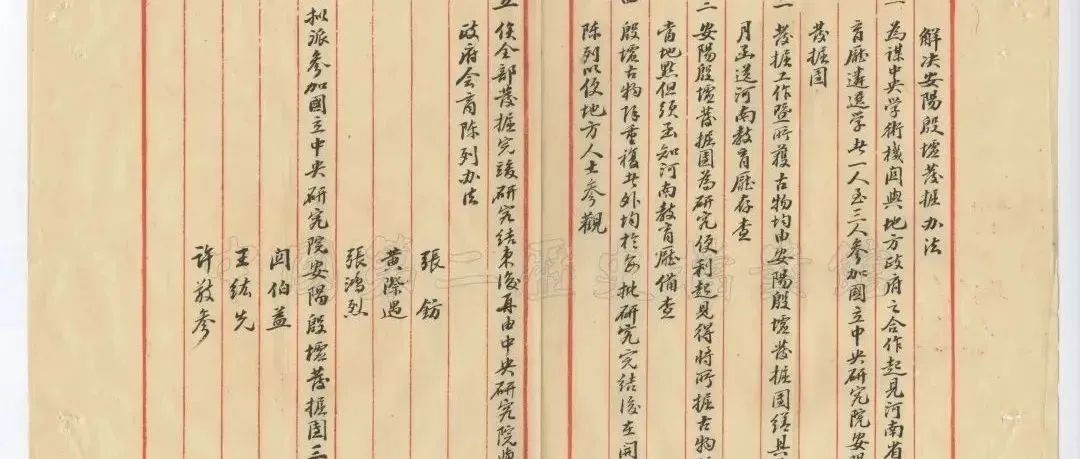 解决安陽殷墟發掘办法
一 為謀中央学術機関與地方政府之合作起見河南省
育廳遴選学者一人至三人參加國立中央研究院安陽
發掘团
二 發掘工作暨所獲古物均由安陽殷墟發掘团繕具
月函送河南教育廳存查
三 安陽殷墟發掘团為研究便利起見得將所掘古物
當地點但須函知河南教育廳備查
四 殷墟古物除重複者外均於每批研究完結後在開
陳列以便地方人士参觀
五 俟全部發掘完竣研究結束後再由中央研究院與
政府会商陳列办法
張鈁
黄際遇
張鴻烈
拟派參加國立中央研究院安陽殷墟發掘团三
関伯益
王紘先
許敬参